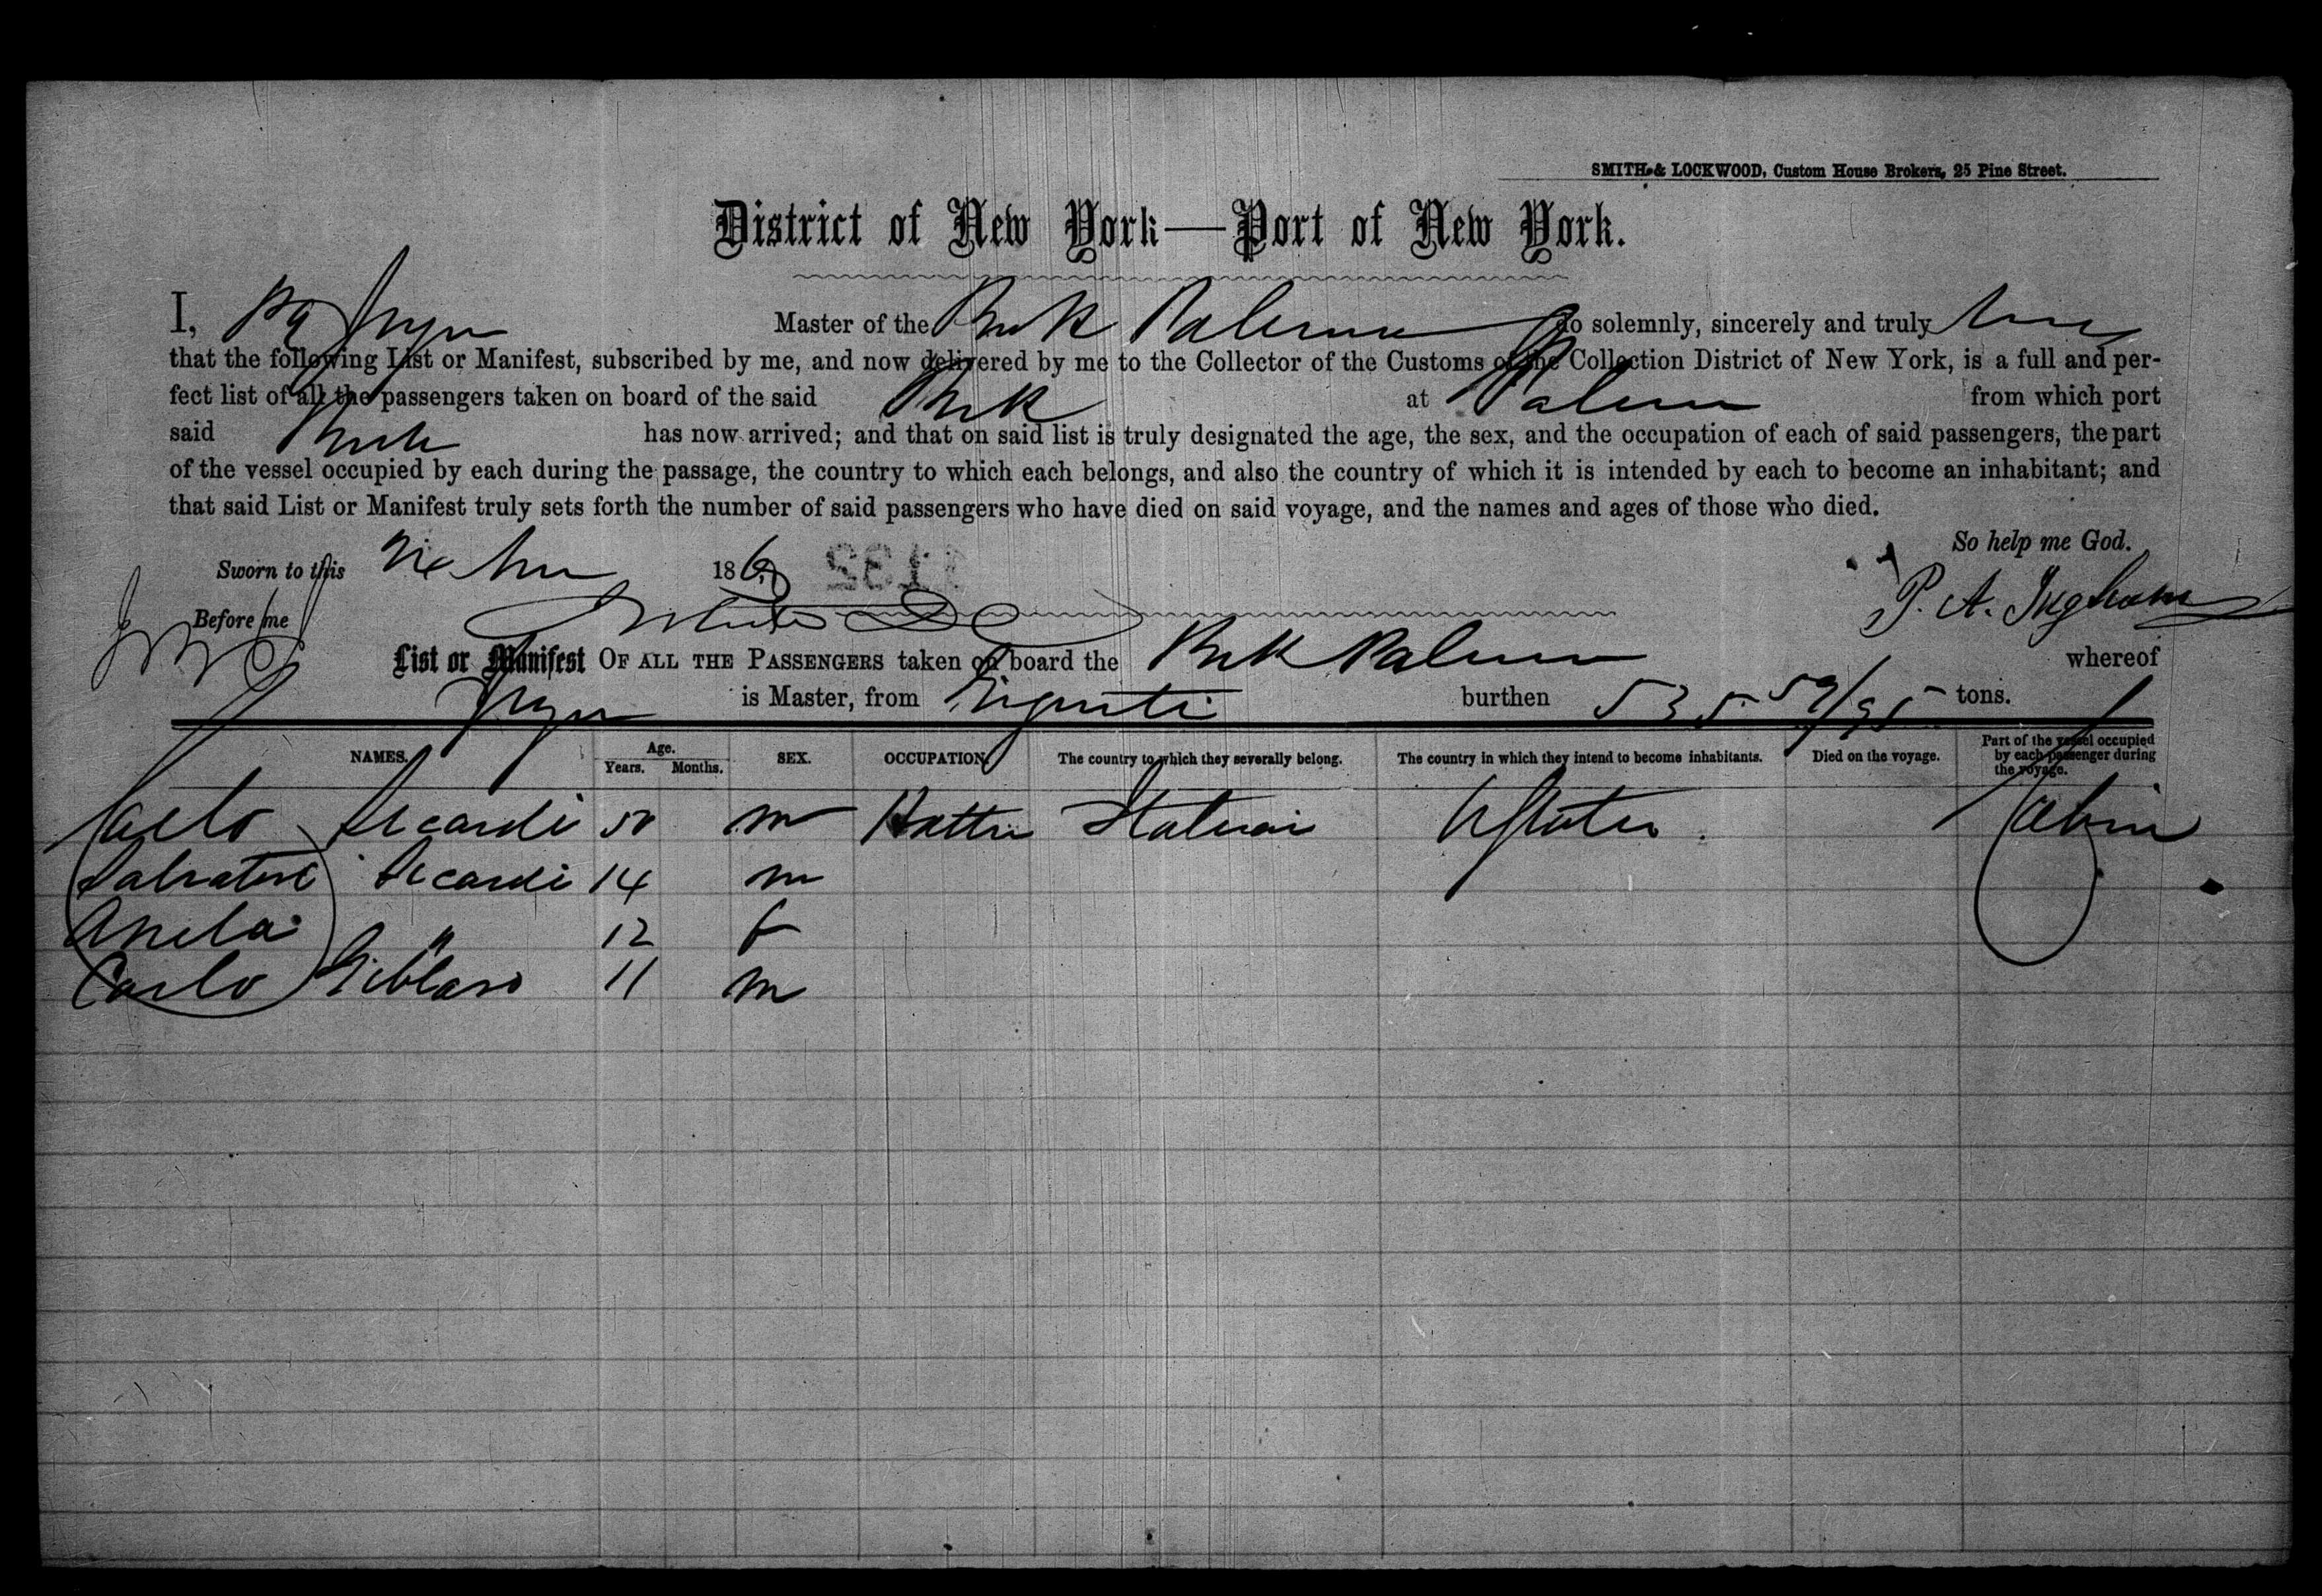 SMITH & LOCKWOOD, Custom House Brokers, 25 Pine Street.
District of New York—Port of New York.
I, Master of the Bark Palermo do solemnly, sincerely and truly
that the following List or Manifest, subscribed by me, and now delivered by me to the Collector of the Customs of the Collection District of New York, is a full and per-
fect list of all the passengers taken on board of the said Bark at Palermo from which port
said Bark has now arrived; and that on said list is truly designated the age, the sex, and the occupation of each of said passengers, the part
of the vessel occupied by each during the passage, the country to which each belongs, and also the country of which it is intended by each to become an inhabitant; and
that said List or Manifest truly sets forth the number of said passengers who have died on said voyage, and the names and ages of those who died.
So help me God.
Sworn to this 186
1132
P. A. Ingham
Before me
List or Manifest OF ALL THE PASSENGERS taken on board the Bark Palermo whereof
is Master, from burthen 535 59/95 tons.
NAMES. Age. Years. Months. SEX. OCCUPATION. The country to which they severally belong. The country in which they intend to become inhabitants. Died on the voyage. Part of the vessel occupied by each passenger during the voyage.
Carlo 50 m Hatter U States Cabin
Salvatore 14 m
" 12 f
Carlo 11 m